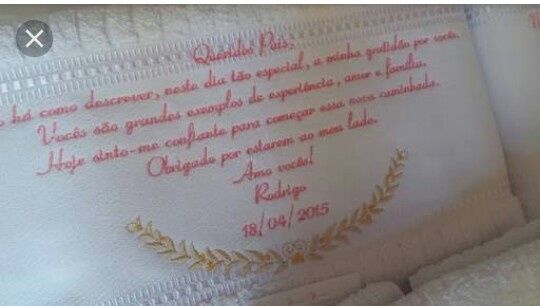 Queridos Pais,
há como descrever, neste dia tão especial, a minha gratidão por vocês.
Vocês são grandes exemplos de experiência, amor e família.
Hoje sinto-me confiante para começar essa nova caminhada.
Obrigado por estarem ao meu lado.
Amo vocês!
Rodrigo
18/04/2015